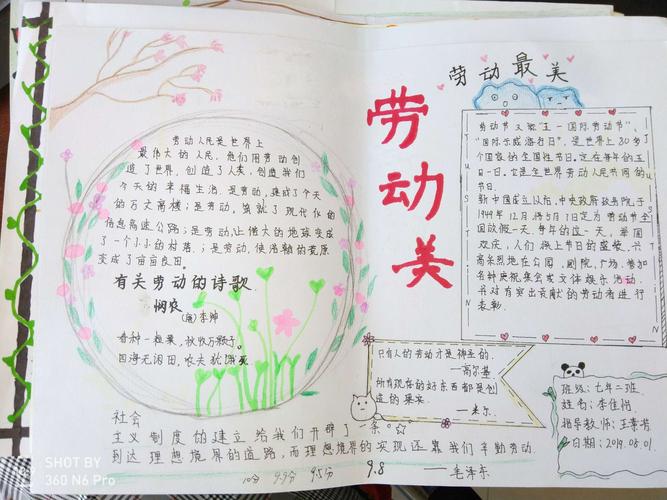 劳动人民是世界上
最伟大的人民，他们用劳动创
造了世界，创造了人类，创造我们
今天的幸福生活，是劳动，建成了今天
的万丈高楼；是劳动，筑就了现代化的
信息高速公路；是劳动，让偌大的地球变成
了一个小小的村落；是劳动，使浩瀚的荒原
变成了亩亩良田。
有关劳动的诗歌
悯农
李绅
春种一粒粟，秋收万颗子。
四海无闲田，农夫犹饿死
劳动美
劳动最美
劳动节又称"五一国际劳动节"、
"国际示威游行日"，是世界上80多个
国家的全国性节日，定在每年的五
月一日。它是全世界劳动人民共同的
节日。
新中国成立以后，中央政府政务院于
1949年12月将5月1日定为劳动节全
国放假一天。每年的这一天，举国
欢庆，人们换上节日的盛装，兴
高采烈地在公园，剧院，广场，参加
各种庆祝集会或文体娱乐活动，
并对有突出贡献的劳动者进行
表彰。
只有人的劳动才是神圣的。
——高尔基
所有现存的好东西都是创
造的果实。
——米尔
班级：七年二班
姓名：李佳怡
指导教师：王
日期：2019.05.01.
社会
主义制度的建立给我们开辟了一条
到达理想境界的道路，而理想境界的实现还靠我们辛勤劳动
——毛泽东
10分 9.9分 9.5分 9.8
SHOT BY
360 N6 Pro